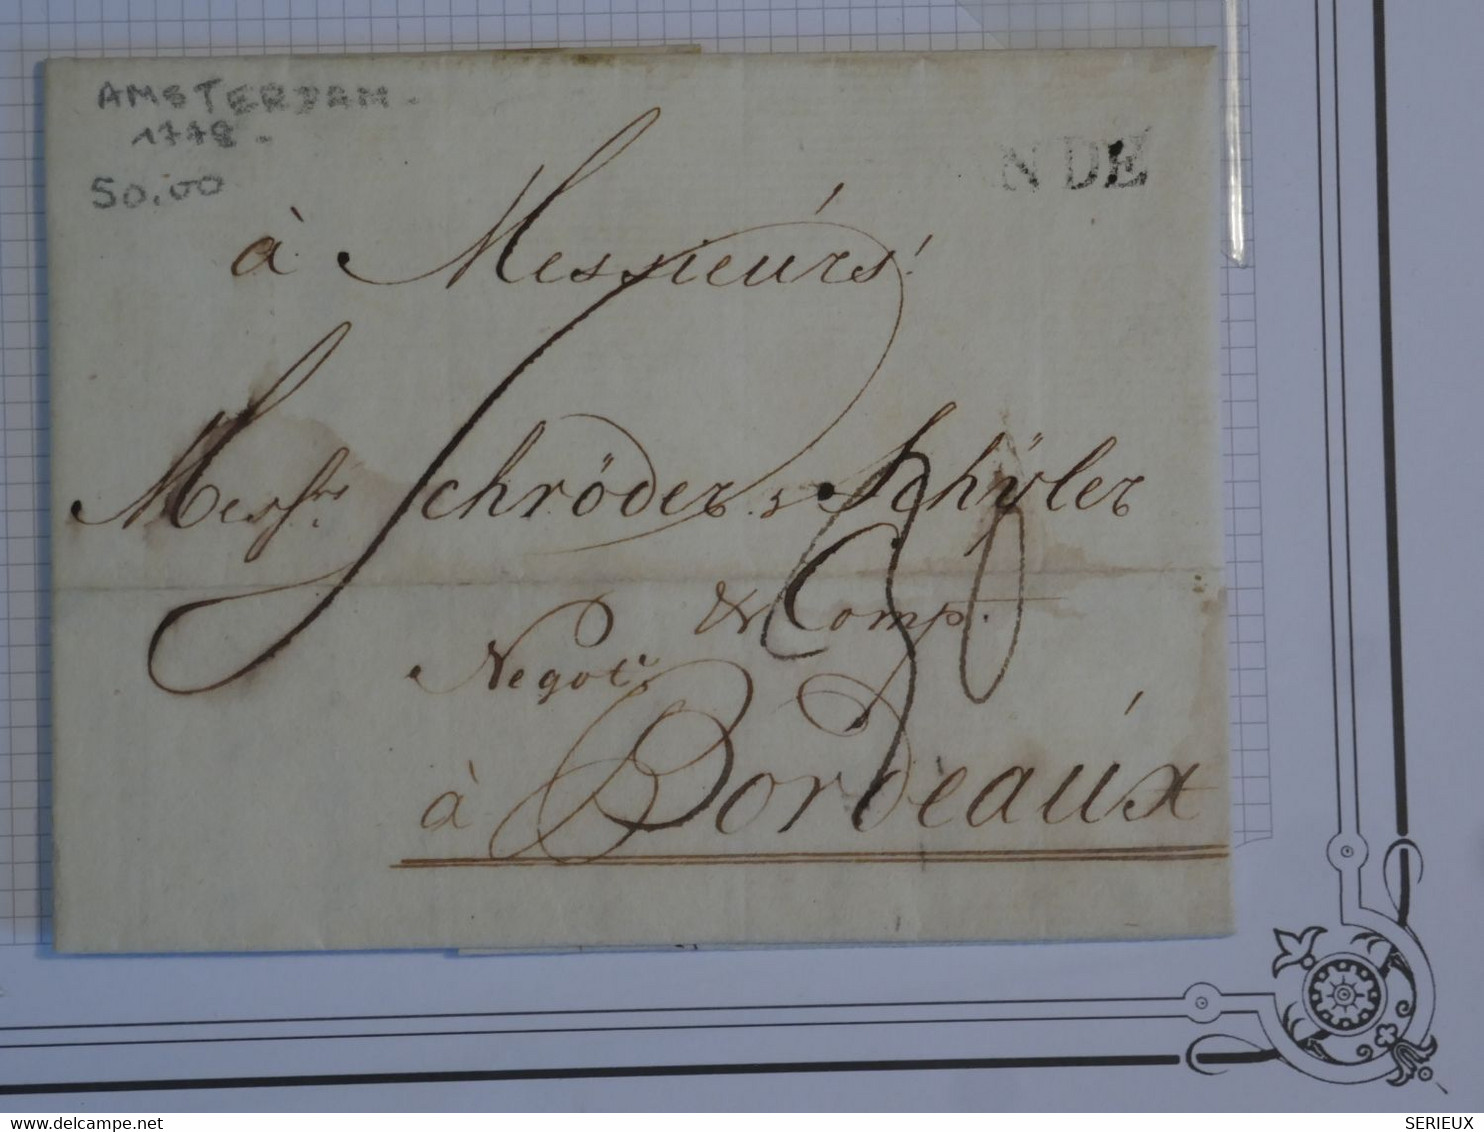 AMSTERDAM -
1778 -
50,00
N DE
à Messieurs
Messrs Schröder & Schÿler
& Comp.
Negots
à Bordeaux
30
SERIEUX
www.delcampe.net